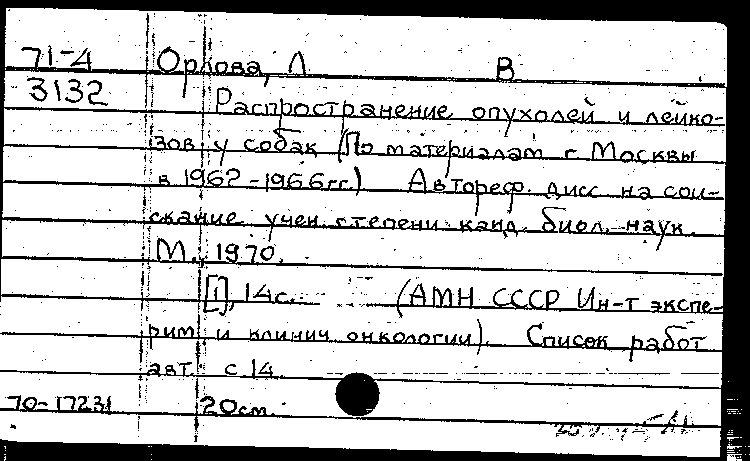 71-4 Орлова, Л В
3132 Распространение опухолей и лейко-
зов у собак (По материалам г. Москвы
в 1962-1966гг.) Автореф. дисс на сои-
скание учен. степени канд. биол. наук.
М., 1970.
[1], 14с. (АМН СССР Ин-т экспе-
рим и клинич онкологии). Список работ
авт. с 14.
70-17231 20см.